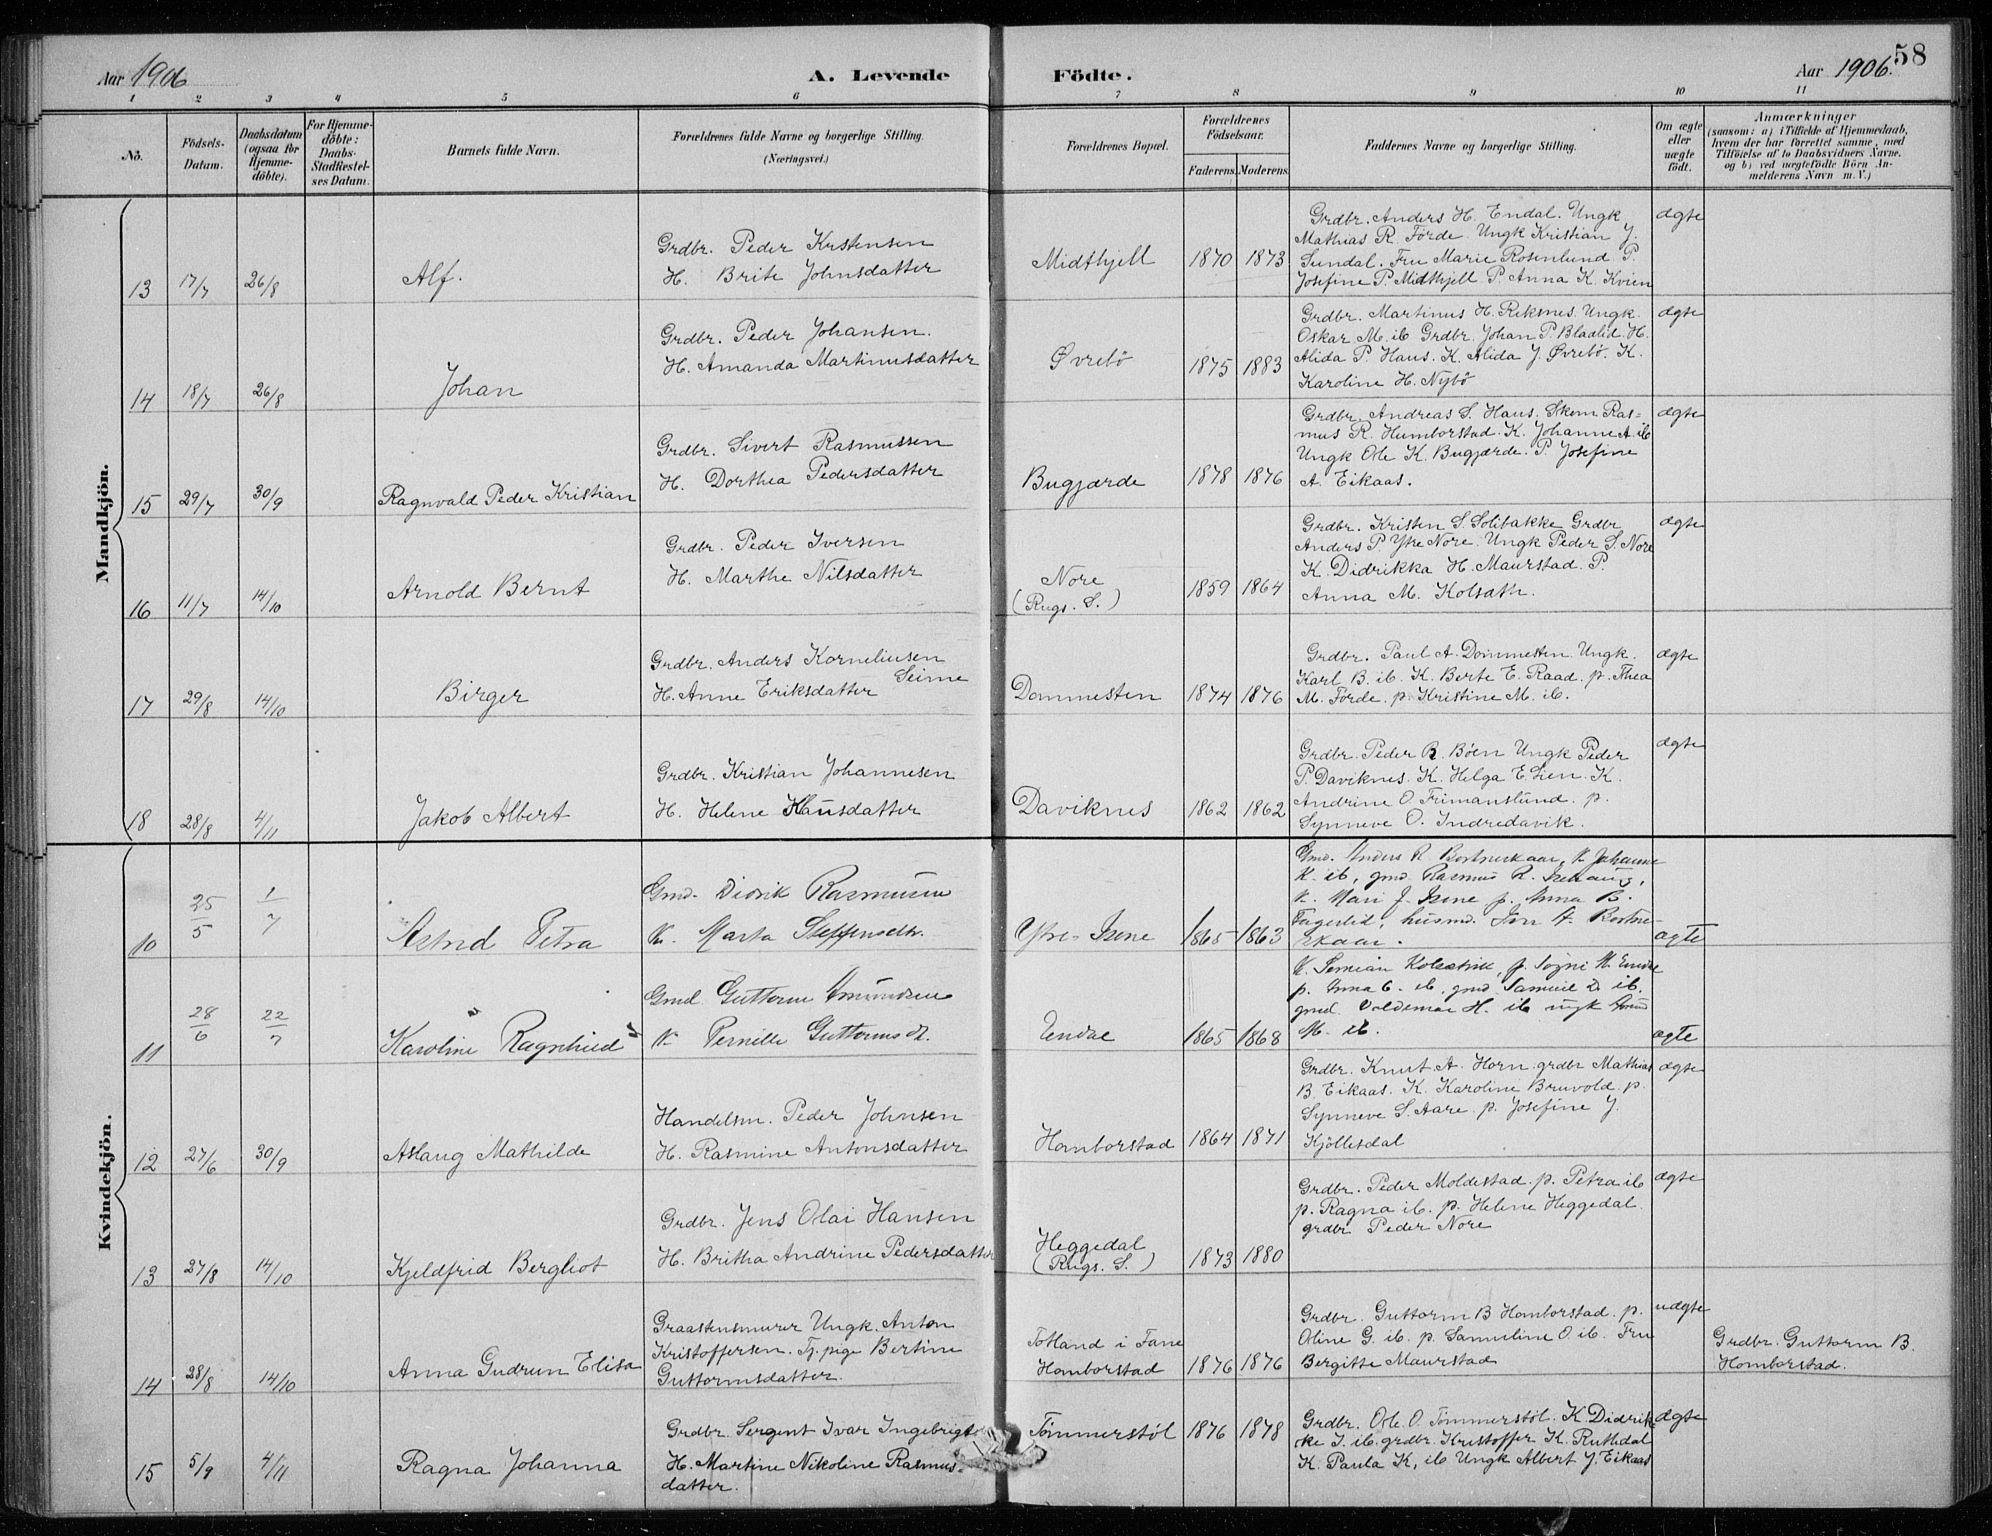 Aar 1906
A. Levende
Födte.
Aar 1906.
58
1 2 3 4 5 6 7 8 9 10 11
No.
Födsels-
Datum.
Daabsdatum
(ogsaa for
Hjemme-
döbte).
For Hjemme-
döbte:
Daabs-
Stadfestel-
ses Datum.
Barnets fulde Navn.
Forældrenes fulde Navne og borgerlige Stilling.
(Næringsvei.)
Forældrenes Bopæl.
Forældrenes
Födselsaar.
Faderens. Moderens.
Faddernes Navne og borgerlige Stilling.
Om ægte
eller
uægte
födt.
Anmærkninger
(saasom: a) i Tilfælde af Hjemmedaab,
hvem der har forrettet samme, med
Tilföielse af to Daabsvidners Navne.
og b) ved uægtefödte Börn An-
melderens Navn m. V.)
Mandkjön.
13 17/7 26/8 Alf.
Grdbr. Peder Kristensen
H. Brite Johnsdatter
Midthjell 1870 1873
Grdbr. Anders H. Endal. Ungk
Mathias R. Förde. Ungk Kristian J.
Sundal. Fru Marie Rosenlund P
Josefine P. Midthjell P. Anna K. Kvien
ægte
14 18/7 26/8 Johan
Grdbr. Peder Johansen.
H. Amanda Martinusdatter
Øvrebö 1875 1883
Grdbr. Martinus H. Reksnes. Ungk.
Oskar M. ib Grdbr. Johan P. Bladlid. H.
Alida P. Haus. K. Alida J. Øvrebö. K.
Karoline H. Nybö
ægte
15 29/7 30/9 Ragnvald Peder Kristian
Grdbr. Sivert Rasmussen
H. Dorthea Pedersdatter
Bugjærde 1878 1876
Grdbr. Andreas S. Haus. Skom Ras=
mus R. Humborstad. K. Johanne A. ib
Ungk Ole K. Bugjærde. P. Josefine
A. Eikaas.
ægte
16 11/7 14/10 Arnold Bernt
Grdbr. Peder Iversen
H. Marthe Nilsdatter
Nore
(Rugs. S.) 1859 1864
Grdbr. Kristen S. Solibakke Grdbr
Anders P. Ytre Nore. Ungk Peder S. Nore
K. Didrikka H. Maurstad. P.
Anna M. Kolsath.
ægte
17 29/8 14/10 Birger
Grdbr. Anders Korneliusen
Seime
H. Anne Eriksdatter
Dommesten 1874 1876
Grdbr. Paul A. Dommesten. Ungk.
Karl B. ib. K. Berte E. Raad. p. Thea
M. Förde. p. Kristine M. ib.
ægte
18 28/8 4/11 Jakob Albert
Grdbr. Kristian Johannesen
H. Helene Klausdatter
Daviknes 1862 1862
Grdbr. Peder R. Böen Ungk Peder
P. Daviknes. K. Helga E. Lien. K.
Andrine O. Frimanslund. p.
Synneve O. Indredavik.
ægte
Kvindekjön.
10 25/5 1/7 Astrid Petra
Gmd. Didrik Rasmussen
K. Marta Steffensdtr.
Ytre- Isene 1865 1863
Gmd. Anders R Bortneskaar, K. Johanne
K. ib, gmd. Rasmus R.
K. Mari J. Isene p. Anna B.
Fagerlid, husmd. A. Bortne-
skaar.
ægte
11 28/6 22/7 Karoline Ragnhild
Gmd Guttorm Amundsen
K. Pernille Guttormsdt.
Endal 1865 1868
K. p. M. Endal
p. Anna C. ib. gmd Samuel D. ib.
gmd. Valdemar H. ib ungk
M. ib.
ægte
12 27/6 30/9 Aslaug Mathilde
Handelsm. Peder Johnsen
H. Rasmine Antonsdatter
Homborstad 1864 1871
Grdbr. Knut A. Horn. grdbr Mathias
B. Eikaas. K. Karoline Bruvold. p.
Synneve S. Aare. p. Josefine J.
Kjöllesdal
ægte
13 27/8 14/10 Kjeldfrid Bergliot
Grdbr. Jens Olai Hansen
H. Britha Andrine Pedersdatter
Heggedal
(Rugs. S.) 1873 1880
Grdbr. Peder Moldestad. p. Petra ib
p. Ragna ib. p. Helene Heggedal.
grdbr Peder Nore
ægte
14 28/8 14/10 Anna Gudrun Elisa
Graastensmurer Ungk. Anton
Kristoffersen. Tj. pige Bertine
Guttormsdatter.
Totland i Fane
Homborstad 1876 1876
Grdbr. Guttorm B Homborstad. p.
Oline G. ib. p. Samuline O. ib. Fru
Bergitte Maurstad
uægte
Grdbr. Guttorm B.
Homborstad.
15 5/9 4/11 Ragna Johanna
Grdbr. Sergent Ivar Ingebrigt
H. Martine Nikoline Rasmus-
datter.
Tömmerstöl 1876 1878
Grdbr. Ole O. Tömmerstöl. K. Didrik-
ke I. ib. grdbr. Kristoffer K. Ruthdal
K. Paula K. ib Ungk Albert J. Eikaas
ægte